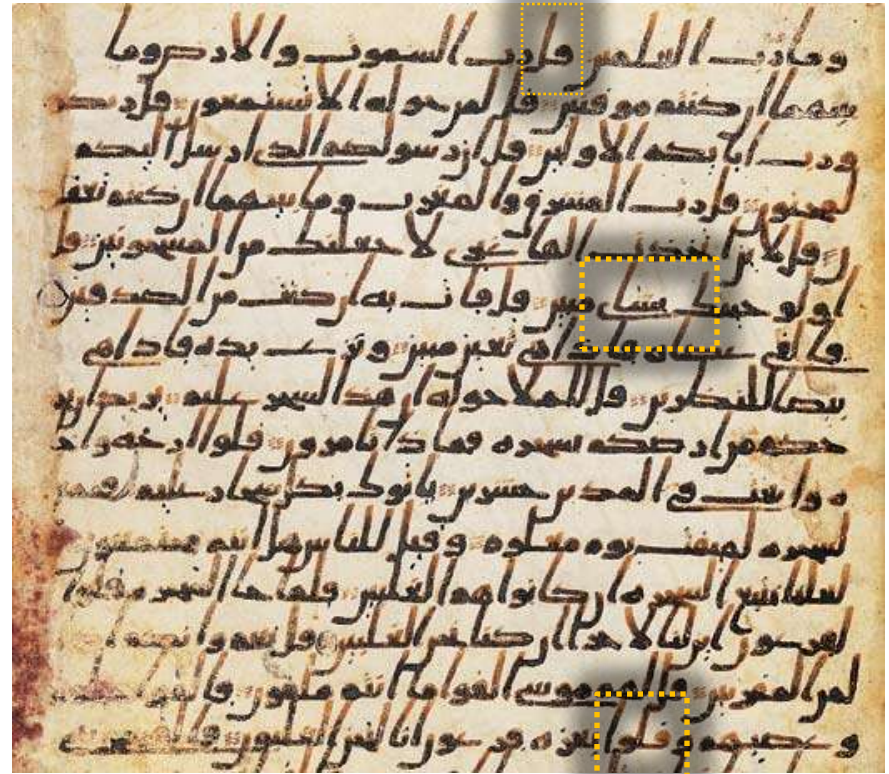 وما رب العلمين قل رب السموت والارض وما
بينهما ان كنتم موقنين قل لمن حوله الا تستمعون قل ربكم
ورب ابايكم الاولين قل ان رسولكم الذي ارسل اليكم
لمجنون قل رب المشرق والمغرب وما بينهما ان كنتم تعقلو
ن قل لين اتخذت الها غيري لاجعلنك من المسجونين قل
اولو جيتك بشاي مبين قل فات به ان كنت من الصدقين
فالقى عصاه فاذا هي ثعبن مبين ونزع يده فاذا هي
بيضا للنظرين قل للملا حوله ان هذا لسحر عليم يريد ان يخر
جكم من ارضكم بسحره فماذا تامرون قلوا ارجه واخا
ه وابعث في المدين حشرين ياتوك بكل سحار عليم فجمع
السحره لميقت يوم معلوم وقيل للناس هل انتم مجتمعون
لعلنا نتبع السحره ان كانوا هم الغلبين فلما جا السحره قلوا
لفرعون اين لنا لاجرا ان كنا نحن الغلبين قل نعم وانكم اذا
لمن المقربين قل لهم موسى القوا ما انتم ملقون فالقوا حبلهم
وعصيهم وقلوا بعزه فرعون انا لنحن الغلبون فالقى